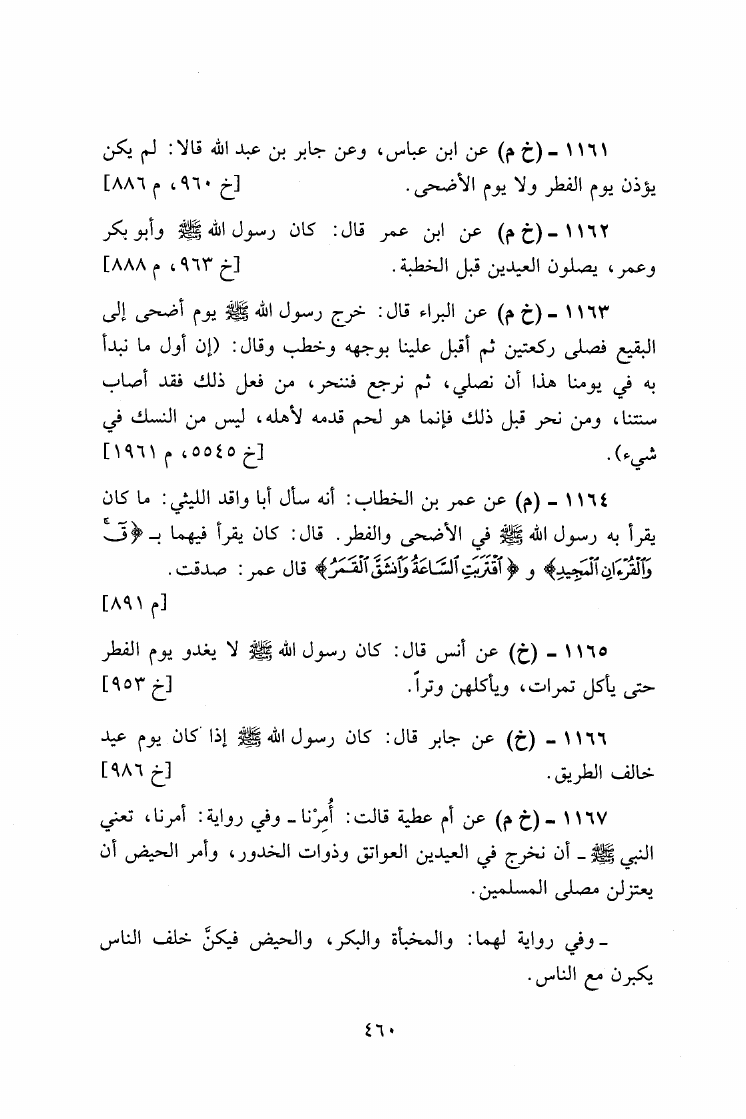 ١١٦١ - (خ م) عن ابن عباس، وعن جابر بن عبد الله قالا: لم يكن
يؤذن يوم الفطر ولا يوم الأضحى. [خ ٩٦٠، م ٨٨٦]
١١٦٢ - (خ م) عن ابن عمر قال: كان رسول الله ﷺ وأبو بكر
وعمر، يصلون العيدين قبل الخطبة. [خ ٩٦٣، م ٨٨٨]
١١٦٣ - (خ م) عن البراء قال: خرج رسول الله ﷺ يوم أضحى إلى
البقيع فصلى ركعتين ثم أقبل علينا بوجهه وخطب وقال: (إن أول ما نبدأ
به في يومنا هذا أن نصلي، ثم نرجع فننحر، من فعل ذلك فقد أصاب
سنتنا، ومن نحر قبل ذلك فإنما هو لحم قدمه لأهله، ليس من النسك في
شيء). [خ ٥٥٤٥، م ١٩٦١]
١١٦٤ - (م) عن عمر بن الخطاب: أنه سأل أبا واقد الليثي: ما كان
يقرأ به رسول الله ﷺ في الأضحى والفطر. قال: كان يقرأ فيهما بـ ﴿قٓۚ
وَٱلْقُرْءَانِ ٱلْمَجِيدِ﴾ و ﴿ٱقْتَرَبَتِ ٱلسَّاعَةُ وَٱنشَقَّ ٱلْقَمَرُ﴾ قال عمر: صدقت.
[م ٨٩١]
١١٦٥ - (خ) عن أنس قال: كان رسول الله ﷺ لا يغدو يوم الفطر
حتى يأكل تمرات، ويأكلهن وتراً. [خ ٩٥٣]
١١٦٦ - (خ) عن جابر قال: كان رسول الله ﷺ إذا كان يوم عيد
خالف الطريق. [خ ٩٨٦]
١١٦٧ - (خ م) عن أم عطية قالت: أُمِرْنا - وفي رواية: أمرنا، تعني
النبي ﷺ - أن نخرج في العيدين العواتق وذوات الخدور، وأمر الحيض أن
يعتزلن مصلى المسلمين.
- وفي رواية لهما: والمخبأة والبكر، والحيض فيكنَّ خلف الناس
يكبرن مع الناس.
٤٦٠